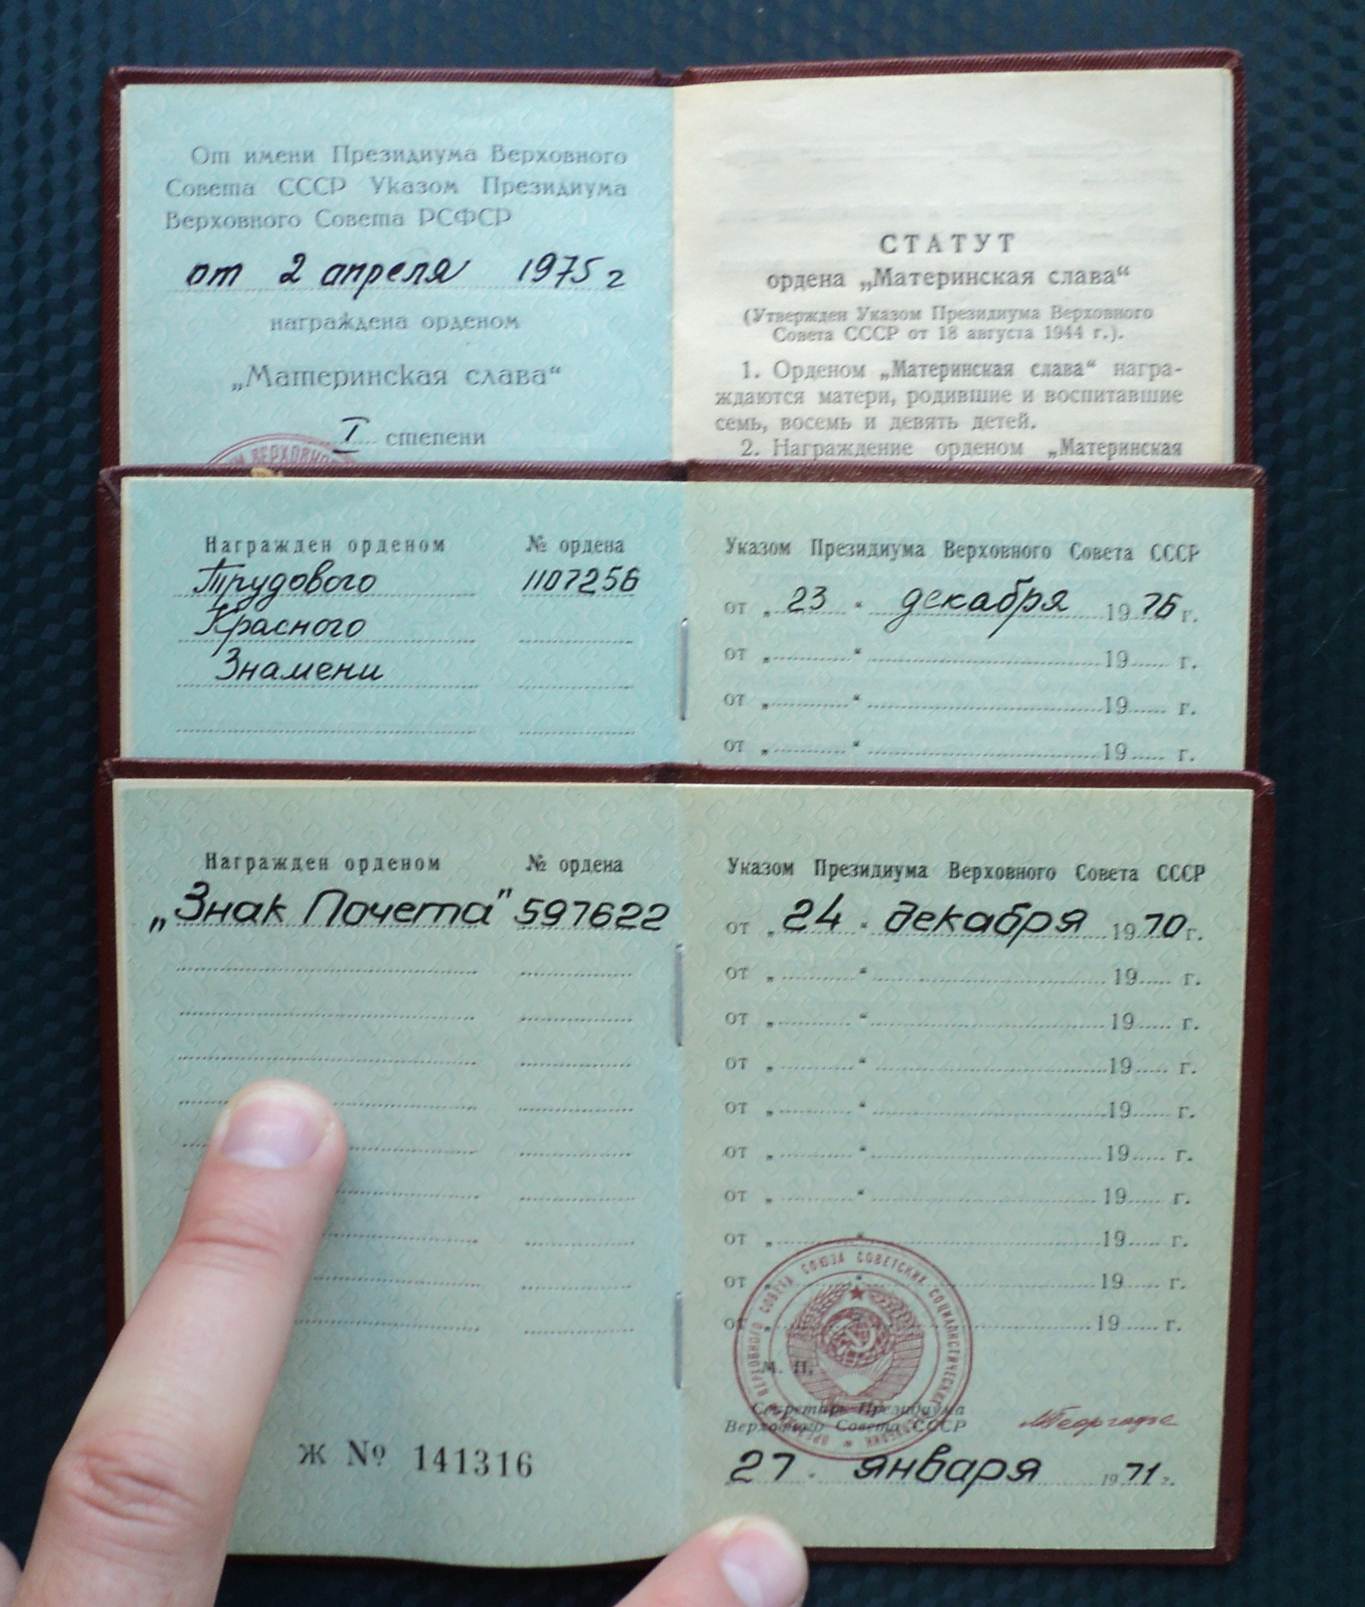 От имени Президиума Верховного
Совета СССР Указом Президиума
Верховного Совета РСФСР
от 2 апреля 1975 г
награждена орденом
„Материнская слава“
I степени
ВЕРХОВНОГО
СТАТУТ
ордена „Материнская слава“
(Утвержден Указом Президиума Верховного
Совета СССР от 18 августа 1944 г.).
1. Орденом „Материнская слава“ награ-
ждаются матери, родившие и воспитавшие
семь, восемь и девять детей.
2. Награждение орденом „Материнская
Награжден орденом № ордена
Трудового 1107256
Красного
Знамени
Указом Президиума Верховного Совета СССР
от „23“ декабря 1976 г.
от „ “ 19 г.
от „ “ 19 г.
от „ “ 19 г.
Награжден орденом № ордена
„Знак Почета" 597622
Ж № 141316
Указом Президиума Верховного Совета СССР
от „24“ декабря 1970 г.
от „ “ 19 г.
от „ “ 19 г.
от „ “ 19 г.
от „ “ 19 г.
от „ “ 19 г.
от „ “ 19 г.
от „ “ 19 г.
от „ “ 19 г.
от „ “ 19 г.
ВЕРХОВНОГО СОВЕТА СОЮЗА СОВЕТСКИХ СОЦИАЛИСТИЧЕСКИХ
М. П.
Секретарь Президиума
Верховного Совета СССР
МГеоргадзе
27. января 1971 г.